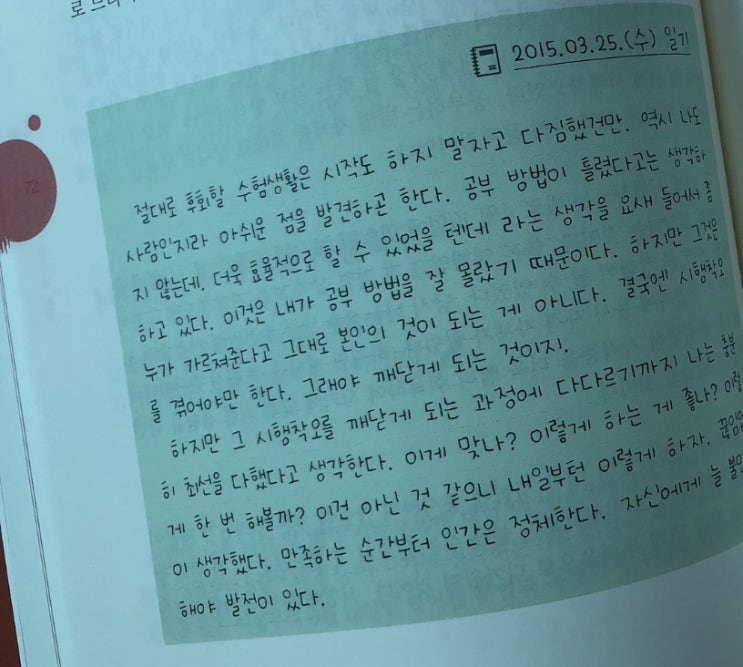 2015.03.25.(수) 일기
절대로 후회할 수험생활은 시작도 하지 말자고 다짐했건만. 역시 나도
사람인지라 아쉬운 점을 발견하곤 한다. 공부 방법이 틀렸다고는 생각하
지 않는데, 더욱 효율적으로 할 수 있었을 텐데 라는 생각을 요새 들어서 좀
하고 있다. 이것은 내가 공부 방법을 잘 몰랐기 때문이다. 하지만 그것은
누가 가르쳐준다고 그대로 본인의 것이 되는 게 아니다. 결국엔 시행착오
를 겪어야만 한다. 그래야 깨닫게 되는 것이지.
하지만 그 시행착오를 깨닫게 되는 과정에 다다르기까지 나는 충분
히 최선을 다했다고 생각한다. 이게 맞나? 이렇게 하는 게 좋나? 이렇
게 한 번 해볼까? 이건 아닌 것 같으니 내일부턴 이렇게 하자. 끊임없
이 생각했다. 만족하는 순간부터 인간은 정체한다. 자신에게 늘
해야 발전이 있다.
72